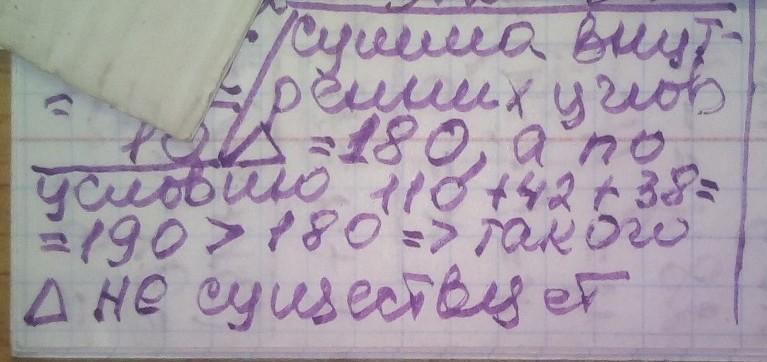 сумма внут-
= = ренних углов
10 Δ = 180, а по
условию 110 + 42 + 38 =
= 190 > 180 => такого
Δ не существует